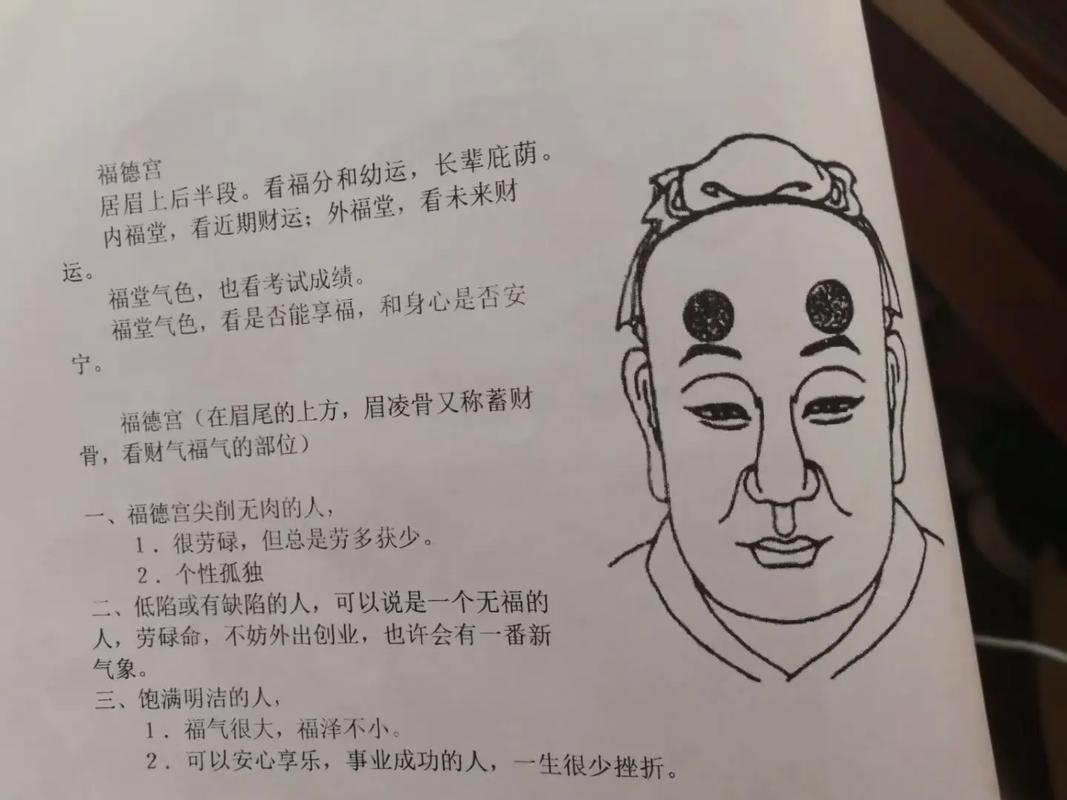 福德宫
居眉上后半段。看福分和幼运，长辈庇荫。
内福堂，看近期财运；外福堂，看未来财
运。
福堂气色，也看考试成绩。
福堂气色，看是否能享福，和身心是否安
宁。
福德宫（在眉尾的上方，眉凌骨又称蓄财
骨，看财气福气的部位）
一、福德宫尖削无肉的人，
1．很劳碌，但总是劳多获少。
2．个性孤独
二、低陷或有缺陷的人，可以说是一个无福的
人，劳碌命，不妨外出创业，也许会有一番新
气象。
三、饱满明洁的人，
1．福气很大，福泽不小。
2．可以安心享乐，事业成功的人，一生很少挫折。